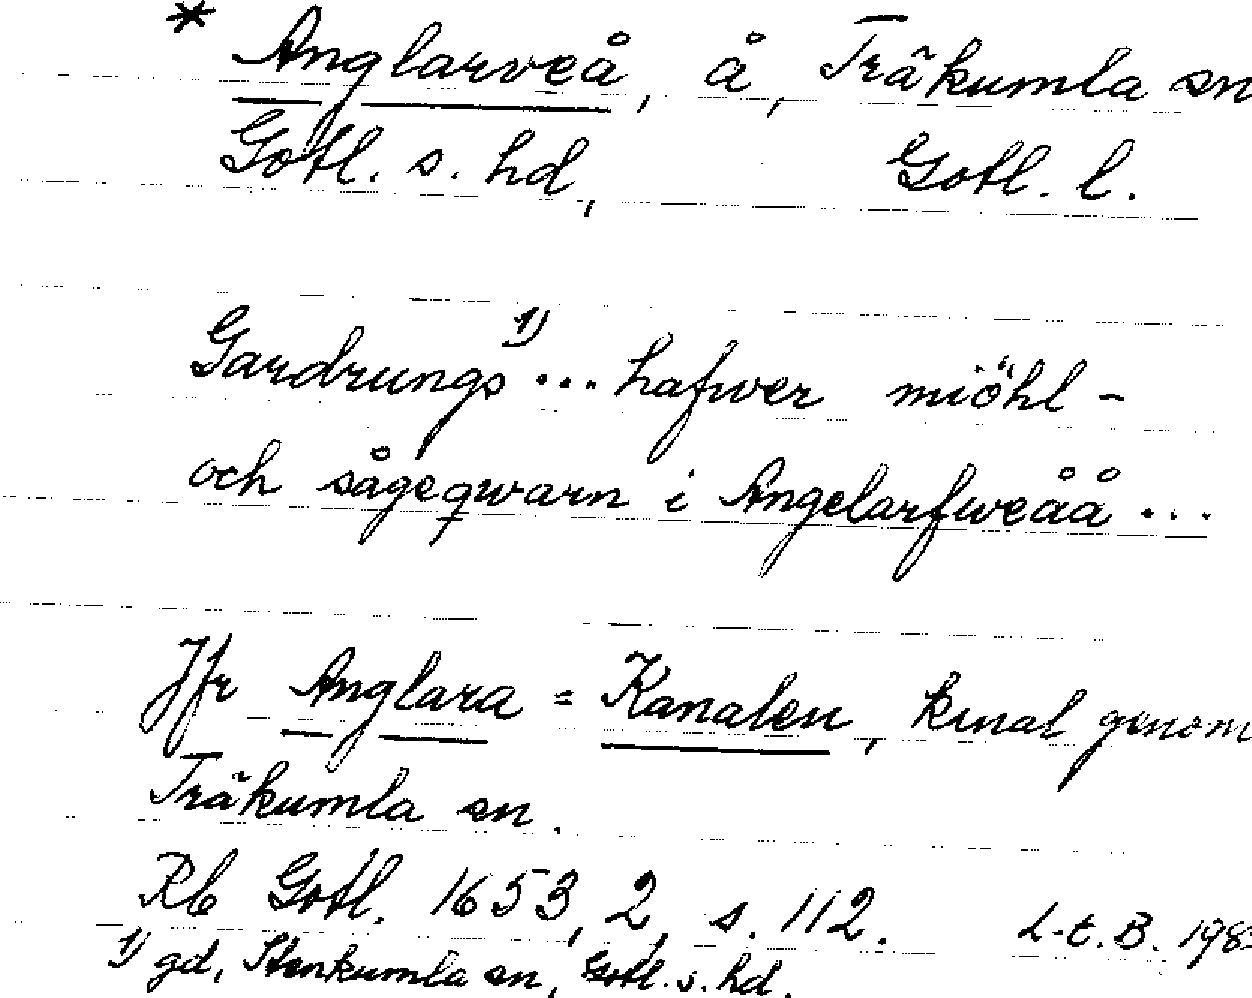 * Anglarveå, å, Träkumla sn
Gotl. s. hd, Gotl. l.
Gardrungs 1) ... hafwer miöhl-
och sågeqwarn i Angelarfweåå ...
Jfr Anglara = Kanalen, kanal genom
Träkumla sn.
Rb Gotl. 1653, 2, s. 112. L-E. B. 198
1) gd, Stenkumla sn, Gotl. s. hd.